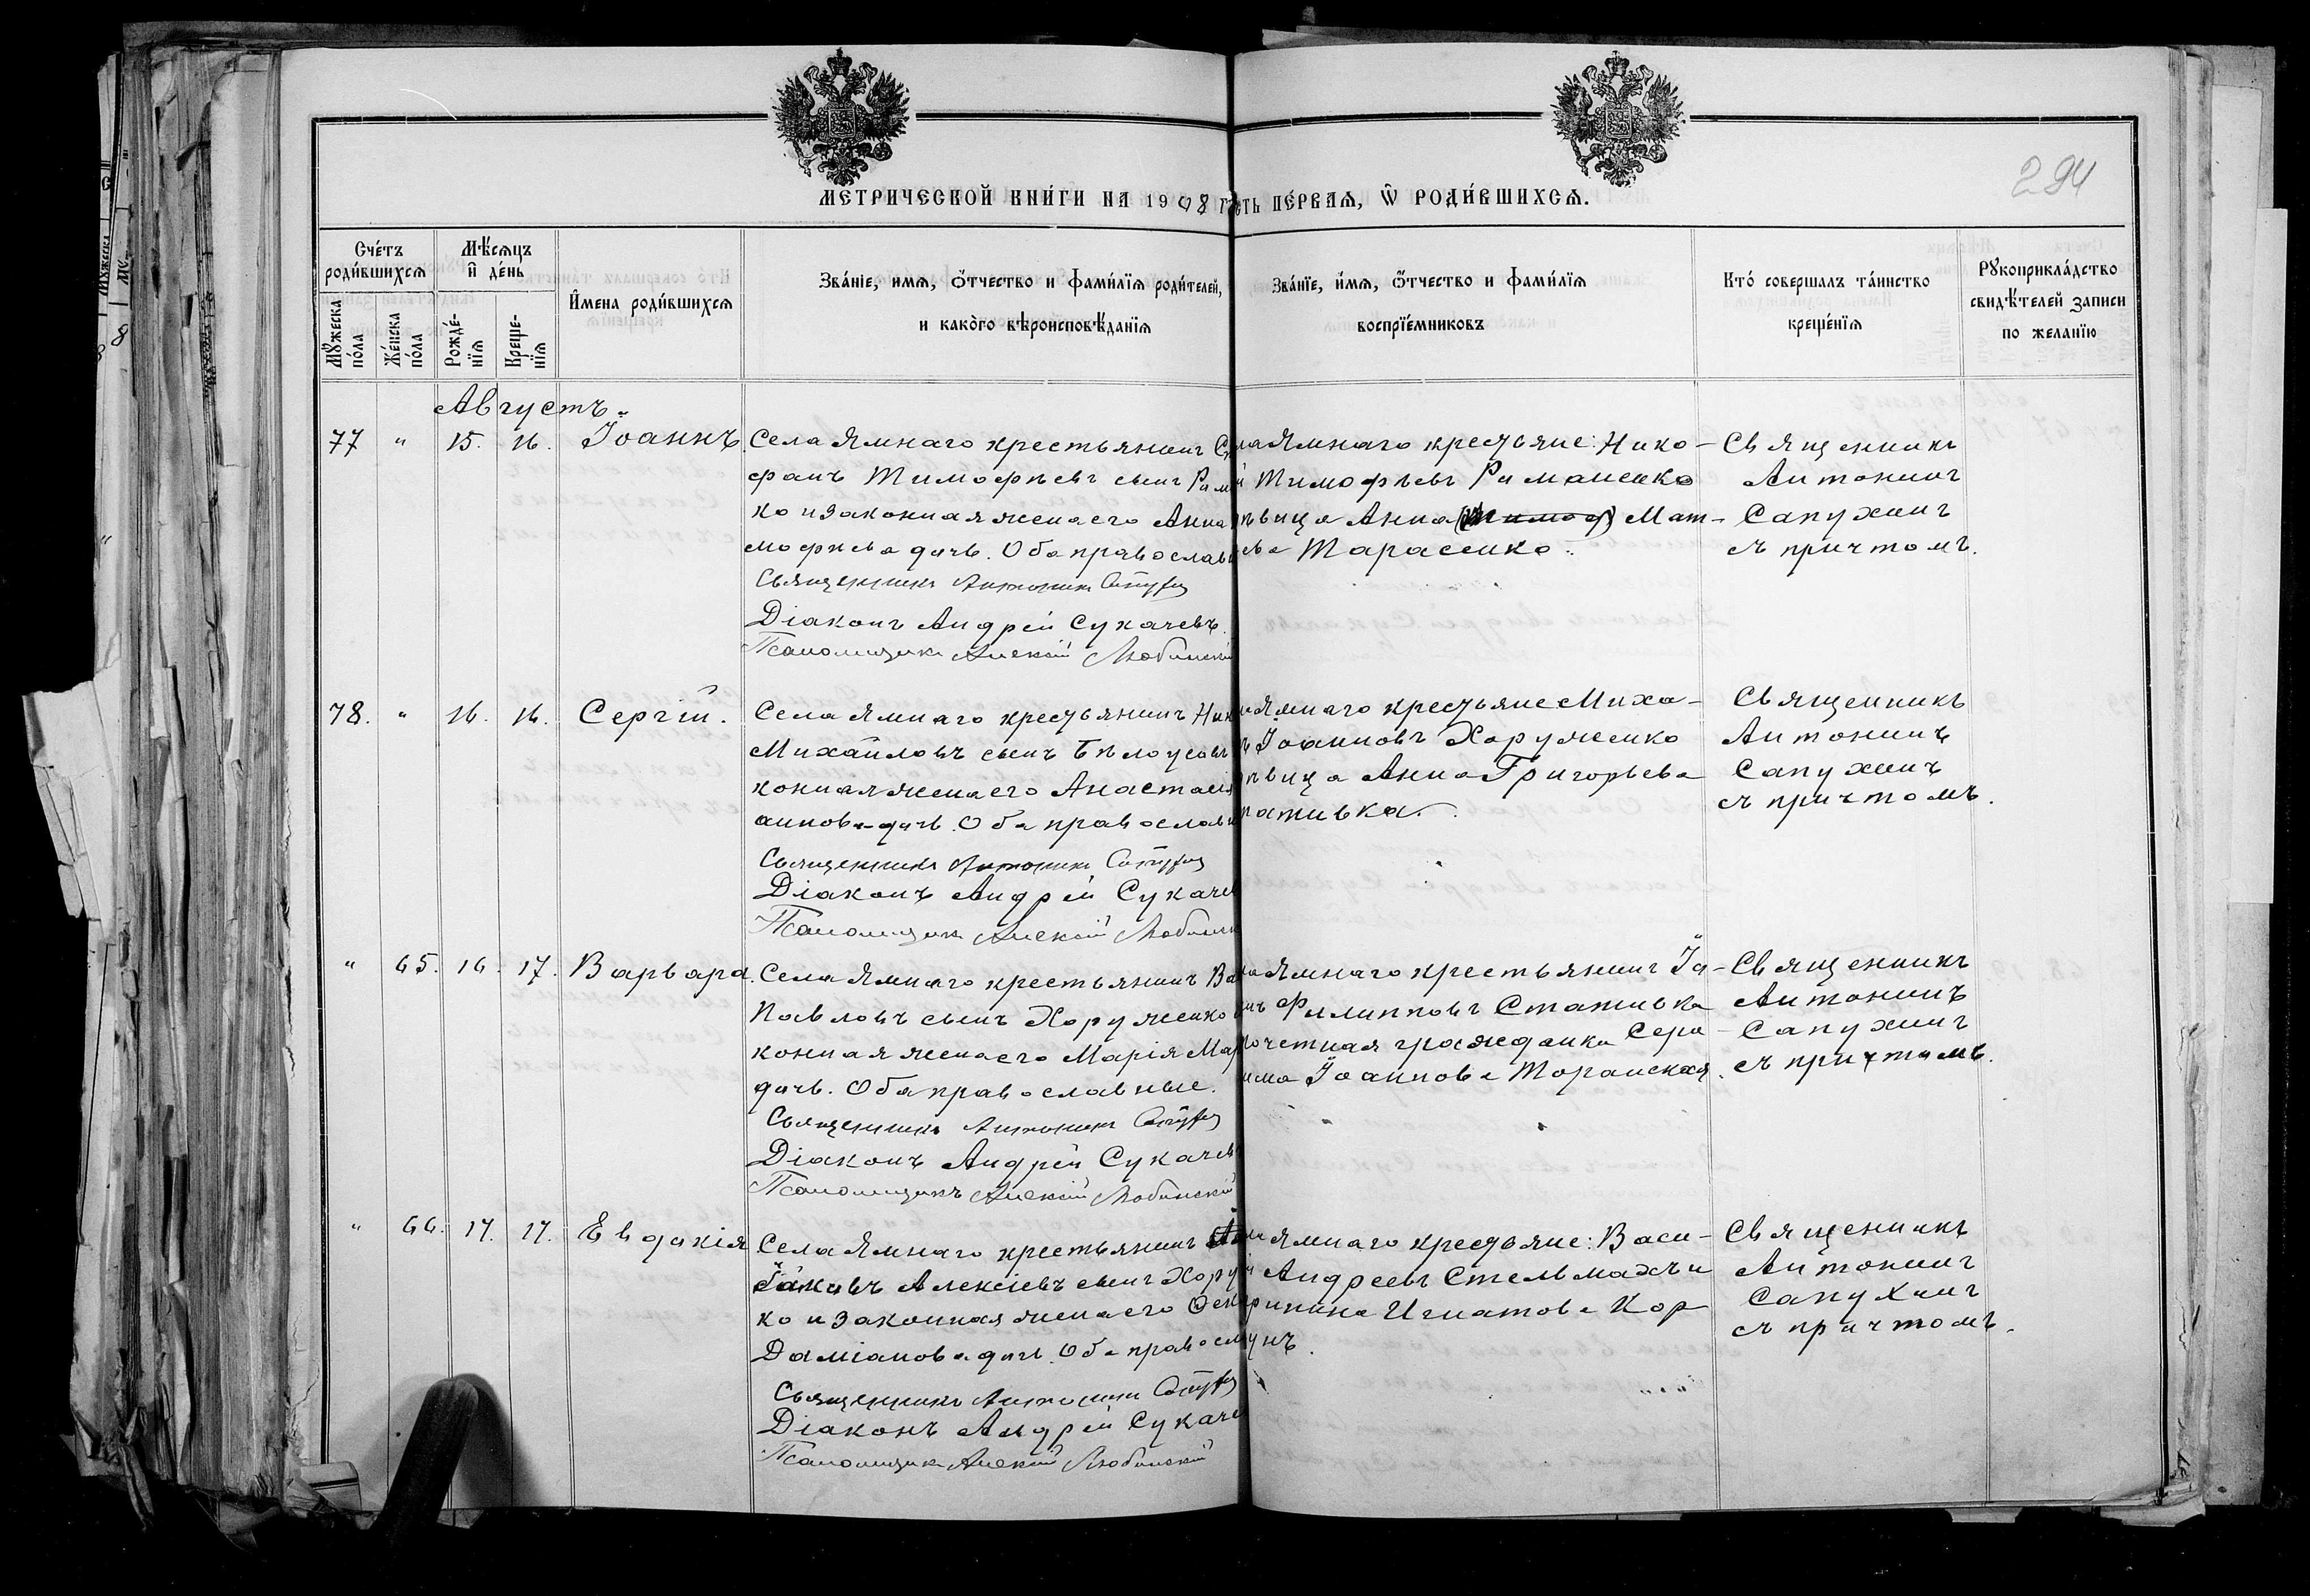 294
МЕТРИЧЕСКОЙ КНИ́ГИ НА 1908 г
сть ПЕ́РВАѦ, Ѿ РОДИ́ВШИХСѦ.
Сче́тъ роди́вшихсѧ
Мꙋ́жеска по́ла
Же́нска по́ла
Мѣ́сѧцъ и҆ де́нь
Рожде́-нїѧ
Креще-нїѧ
И҆́мена роди́вшихсѧ
Зва́нїе, имѧ, ѻ҆́тчество и фами́лїѧ роди́телей,
и како́го вѣроисповѣ́данїѧ
Зва́нїе, и́мѧ, ѻ҆́тчество и фами́лїѧ
воспрїе́мниковъ
Кто́ совершалъ та́инство
креще́нїѧ
Рꙋкоприкла́дство
свидѣ́телей записи
по желанїю
Августъ.
77 " 15. 16. Іоаннъ.
Села Ямнаго крестьянинъ
фанъ Тимофѣевъ сынъ
ко и законная жена его Анна
мофѣева дочь. Оба православн
Священникъ Антонинъ
Діаконъ Андрей Сукачевъ.
Псаломщикъ Алексій Любинскій
Ямнаго крестьяне: Нико-
й Тимофѣевъ Романенко
ѣвица Анна Мат-
ева Тарасенко.
Священникъ
Антонинъ
Сапухинъ
съ причтомъ.
78. " 16. 16. Сергій.
Села Ямнаго крестьянинъ Ник
Михайловъ сынъ Бѣлоусовъ
конная жена его Анастасія
аннова дочь. Оба православн
Священникъ Антонинъ
Діаконъ Андрей Сукачев
Псаломщикъ Алексій Любинск
Ямнаго крестьяне Миха-
ъ Іоанновъ Хоруженко
ѣвица Анна Григорьева
тативка.
Священникъ
Антонинъ
Сапухинъ
съ причтомъ.
" 65. 16. 17. Варвара.
Села Ямнаго крестьянинъ Ва
Павловъ сынъ Хоруженко
конная жена его Марія Мар
дочь. Оба православные.
Священникъ Антонинъ
Діаконъ Андрей Сукачев
Псаломщикъ Алексій Любинскій
Ямнаго крестьянинъ Іа-
Филипповъ Стативка
очетная гражданка Сера-
има Іоаннова Торанская.
Священникъ
Антонинъ
Сапухинъ
съ причтомъ.
" 66. 17. 17. Евдокія
Села Ямнаго крестьянинъ
Іаковъ Алексіевъ сынъ Хору
ко и законная жена его
Даміанова дочь. Оба правосл
Священникъ Антонинъ
Діаконъ Андрей Сукаче
Псаломщикъ Алексій Любинскій
Ямнаго крестьяне: Васи-
й Андреевъ Стельмахъ и
Игнатова Кор
унъ.
Священникъ
Антонинъ
Сапухинъ
съ причтомъ.